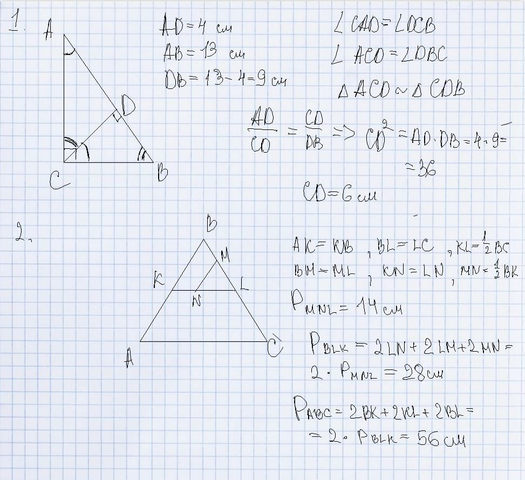 1.
A
D
C
B
AD = 4 см
AB = 13 см
DB = 13 - 4 = 9 см
∠ CAD = ∠ DCB
∠ ACD = ∠ DBC
△ ACD ~ △ CDB
AD/CD = CD/DB => CD² = AD · DB = 4 · 9 =
= 36
CD = 6 см
2.
B
M
K
N
L
A
C
AK = KB , BL = LC , KL = 1/2 BC
BM = ML , KN = LN , MN = 1/2 BK
P MNL = 14 см
P BLK = 2LN + 2LM + 2MN =
2 · P MNL = 28 см
P ABC = 2BK + 2KL + 2BL =
= 2 · P BLK = 56 см